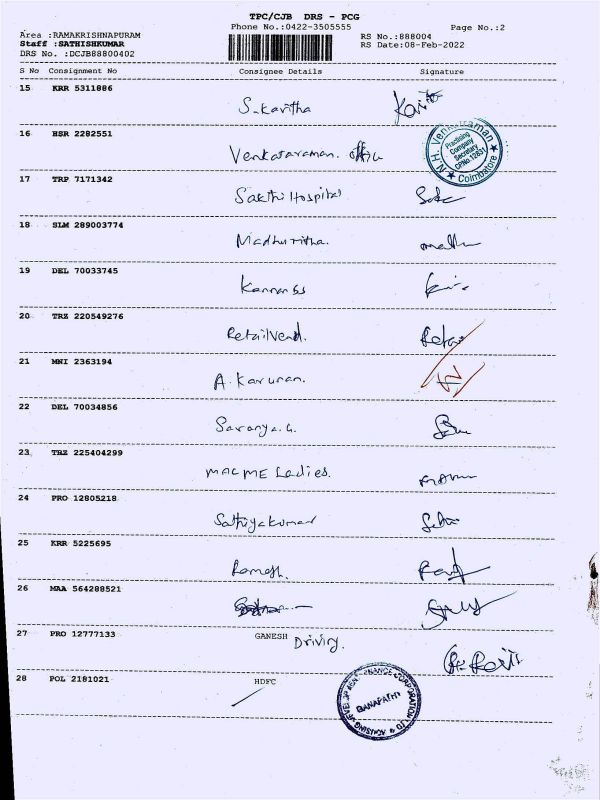 TPC/CJB DRS - PCG
Phone No.:0422-3505555
Page No.:2
Area :RAMAKRISHNAPURAM
Staff :SATHISHKUMAR
DRS No. :DCJB88800402
RS No.:888004
RS Date:08-Feb-2022
S No Consignment No Consignee Details Signature
15 KRR 5311886 S. Kavitha
16 HSR 2282551 Venkataraman. office
N.H. Venkataraman
Practising Company Secretary
CPNo.12831
Coimbatore
17 TRP 7171342 Sakthi Hospital
18 SLM 289003774 Madhuritha.
19 DEL 70033745 Kannan
20 TRZ 220549276 Retail Vend.
21 MNI 2363194 A. Karunan.
22 DEL 70034856 Saranya.G.
23 TRZ 225404299 MACME Ladies.
24 PRO 12805218 Sathiyakumar
25 KRR 5225695 Ramesh.
26 MAA 564288521
27 PRO 12777133 GANESH Driving.
28 POL 2181021 HDFC
HOUSING DEVELOPMENT FINANCE CORPORATION LTD
GANAPATHY